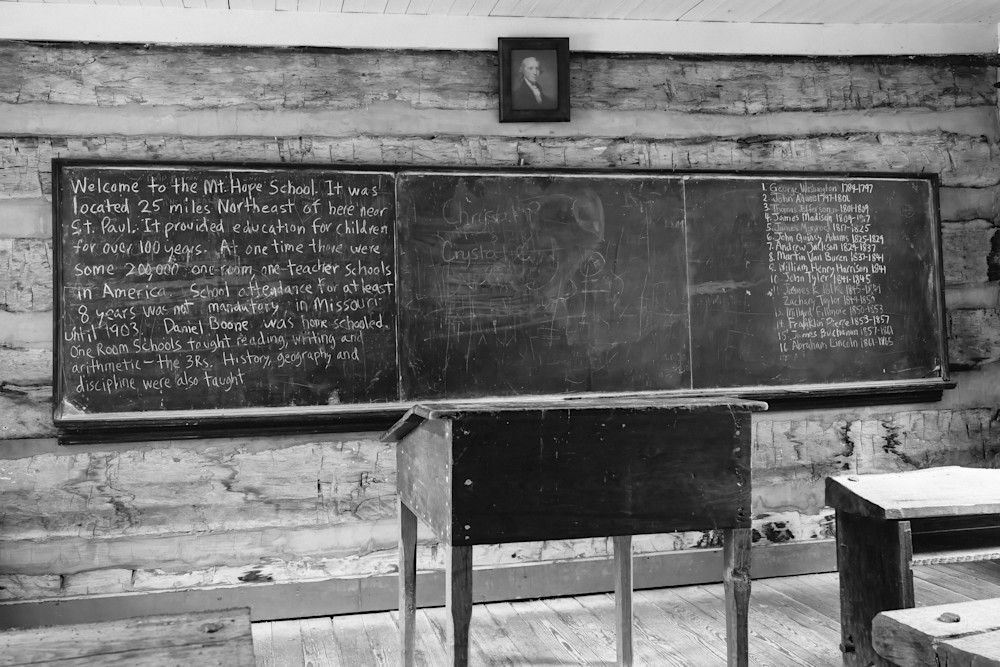 Welcome to the Mt. Hope School. It was
located 25 miles Northeast of here near
St. Paul. It provided education for children
for over 100 years. At one time there were
some 200,000 one-room, one-teacher schools
in America. School attendance for at least
8 years was not mandatory in Missouri
until 1903. Daniel Boone was home schooled.
One Room Schools taught reading, writing and
arithmetic - the 3Rs. History, geography and
discipline were also taught
1. George Washington 1789-1797
2. John Adams 1797-1801
3. Thomas Jefferson 1801-1809
4. James Madison 1809-
5. James Monroe 1817-1825
6. John Quincy Adams 1825-1829
7. Andrew Jackson 1829-1837
8. Martin Van Buren 1837-1841
9. William Henry Harrison 1841
10. John Tyler 1841-1845
11. James K.
12. Zachary Taylor
13. Millard Fillmore 1850-1853
14. Franklin Pierce 1853-1857
15. James Buchanan 1857-1861
16. Abraham Lincoln 1861-1865